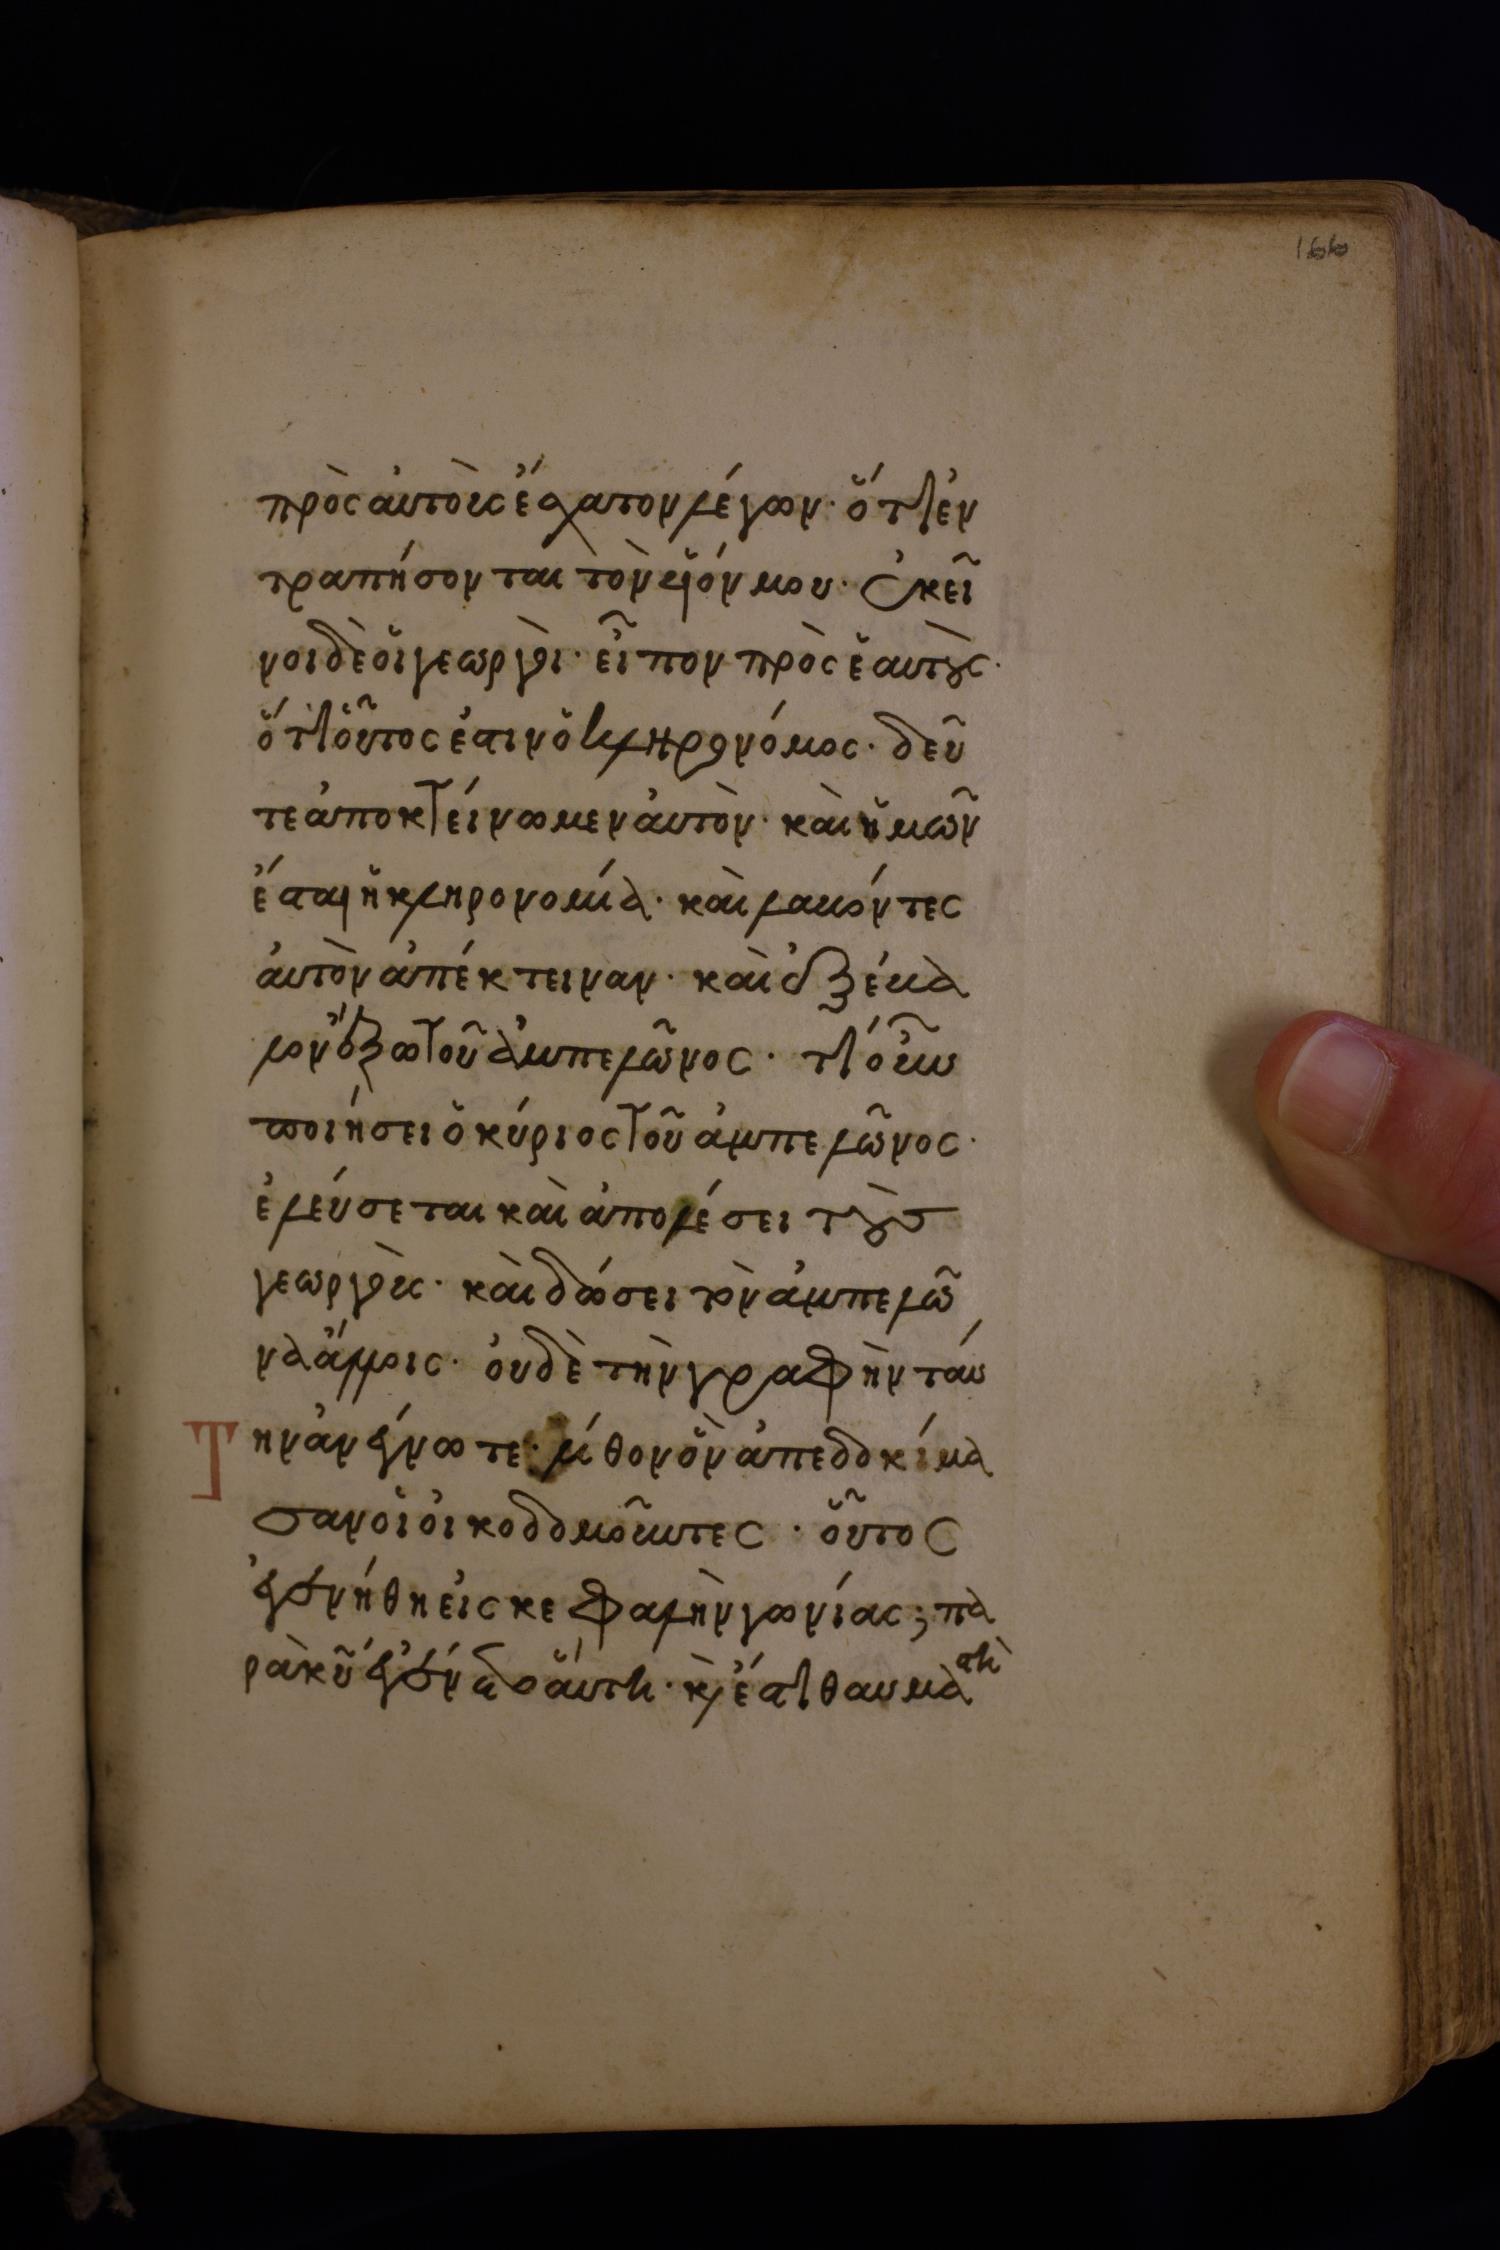 166
πρὸς αὐτοὺς ἔσχατον λέγων· ὅτι ἐν
τραπήσονται τὸν υἱόν μου· Ἐκεῖ
νοι δὲ οἱ γεωργοὶ· εἶπον πρὸς ἑαυτοὺς·
ὅτι οὗτος ἐστιν ὁ κληρονόμος· δεῦ
τε ἀποκτείνωμεν ἀυτὸν· καὶ ἡμῶν
ἔσται ἡ κληρονομία· καὶ λαβόντες
ἀυτὸν ἀπέκτειναν· καὶ ἐξέβα
λον ἔξω τοῦ ἀμπελῶνος· τί οὖν
ποιήσει ὁ κύριος τοῦ ἀμπελῶνος·
ἐλεύσεται καὶ ἀπολέσει τοὺς
γεωργοὺς· καὶ δώσει τὸν ἀμπελῶ
να ἄλλοις· οὐδὲ τὴν γραφὴν ταύ
Τ την ἀνέγνωτε· λίθον ὃν ἀπεδοκίμα
σαν οἱ οἰκοδομοῦντες· οὗτος
ἐγενήθη εἰς κεφαλὴν γωνίας; πα
ρὰ κῦ ἐγένετο ἄυτη· κὶ ἔστι θαυμαστὴ